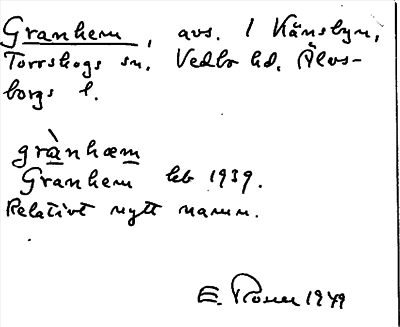 Granhem, avs. 1 Känsbyn,
Torrskogs sn. Vedbo hd. Älvs-
borgs l.
grànhæm
Granhem kb 1939.
Relativt nytt namn.
E. Rosen 1949